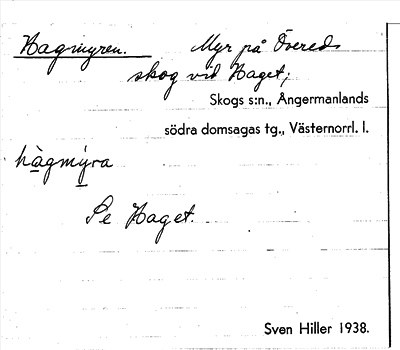 Hagmyren. Myr på Övereds
skog vid Haget;
Skogs s:n., Ångermanlands
södra domsagas tg., Västernorrl. l.
hàgmýra
Se Haget.
Sven Hiller 1938.